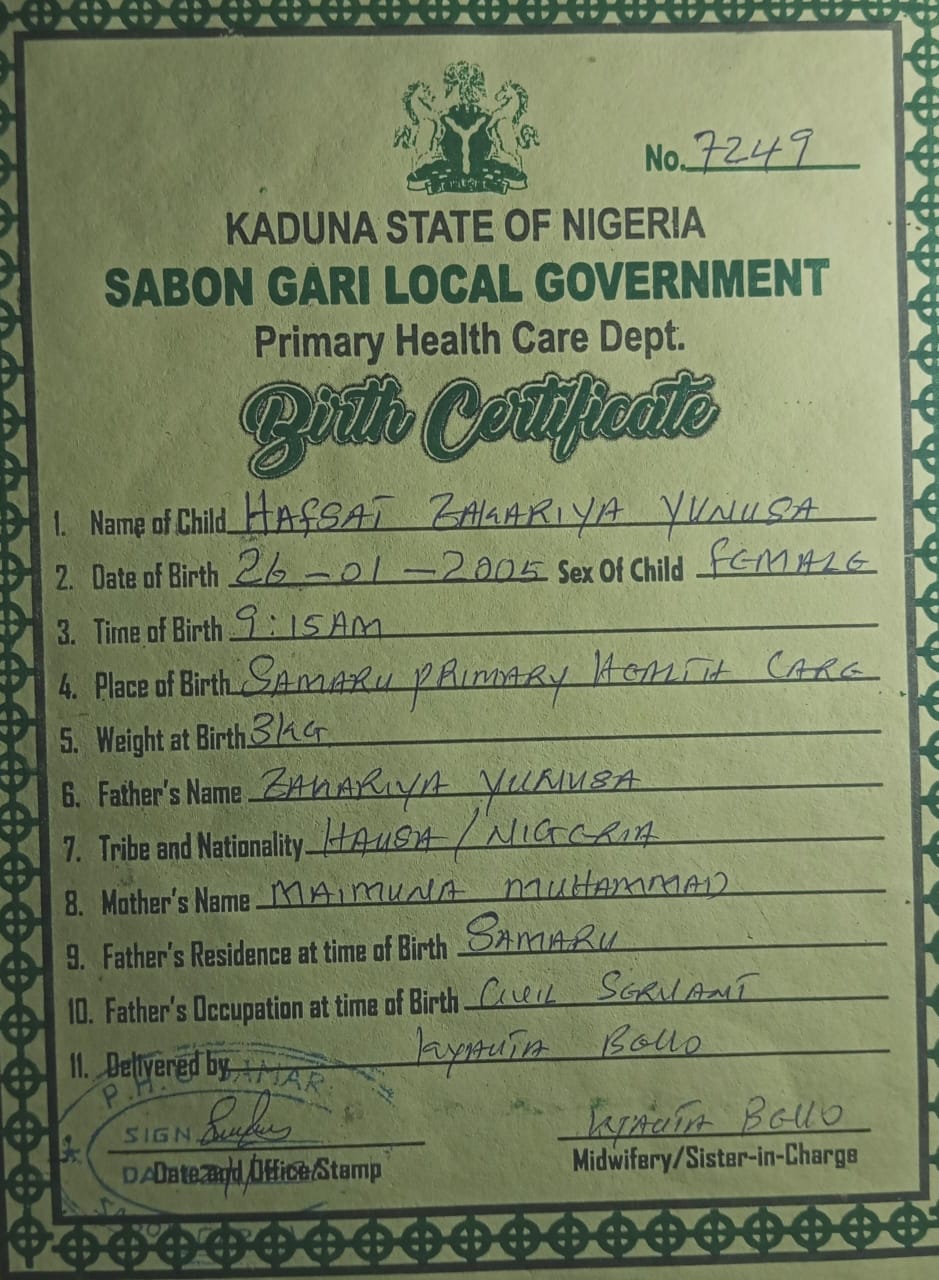 No. 7249
KADUNA STATE OF NIGERIA
SABON GARI LOCAL GOVERNMENT
Primary Health Care Dept.
Birth Certificate
1. Name of Child HAFSAT ZAKARIYA YUNUSA
2. Date of Birth 26-01-2005 Sex Of Child FEMALE
3. Time of Birth 9:15AM
4. Place of Birth SAMARU PRIMARY HEALTH CARE
5. Weight at Birth 3KG
6. Father's Name ZAKARIYA YUNUSA
7. Tribe and Nationality HAUSA/NIGERIA
8. Mother's Name MAIMUNA MUHAMMAD
9. Father's Residence at time of Birth SAMARU
10. Father's Occupation at time of Birth CIVIL SERVANT
11. Delivered by BELLO
P.H.C SAMAR
SIGN BELLO
Date and Office/Stamp Midwifery/Sister-in-Charge